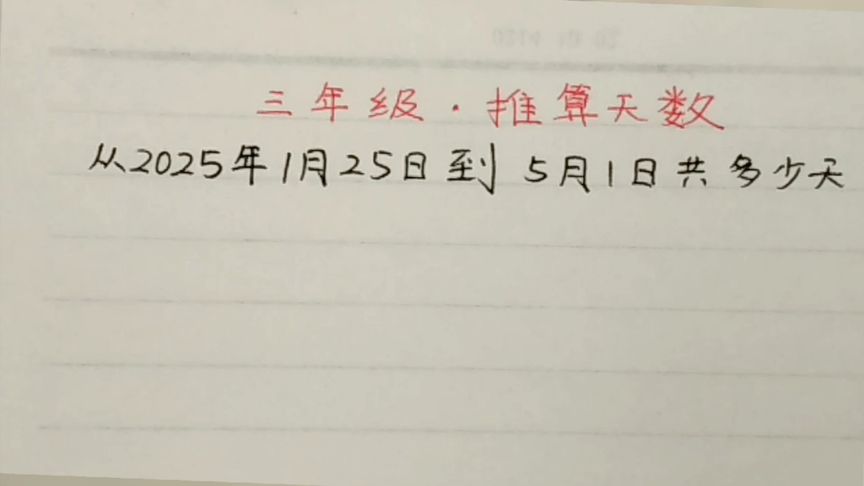 三年级·推算天数
从2025年1月25日到5月1日共多少天